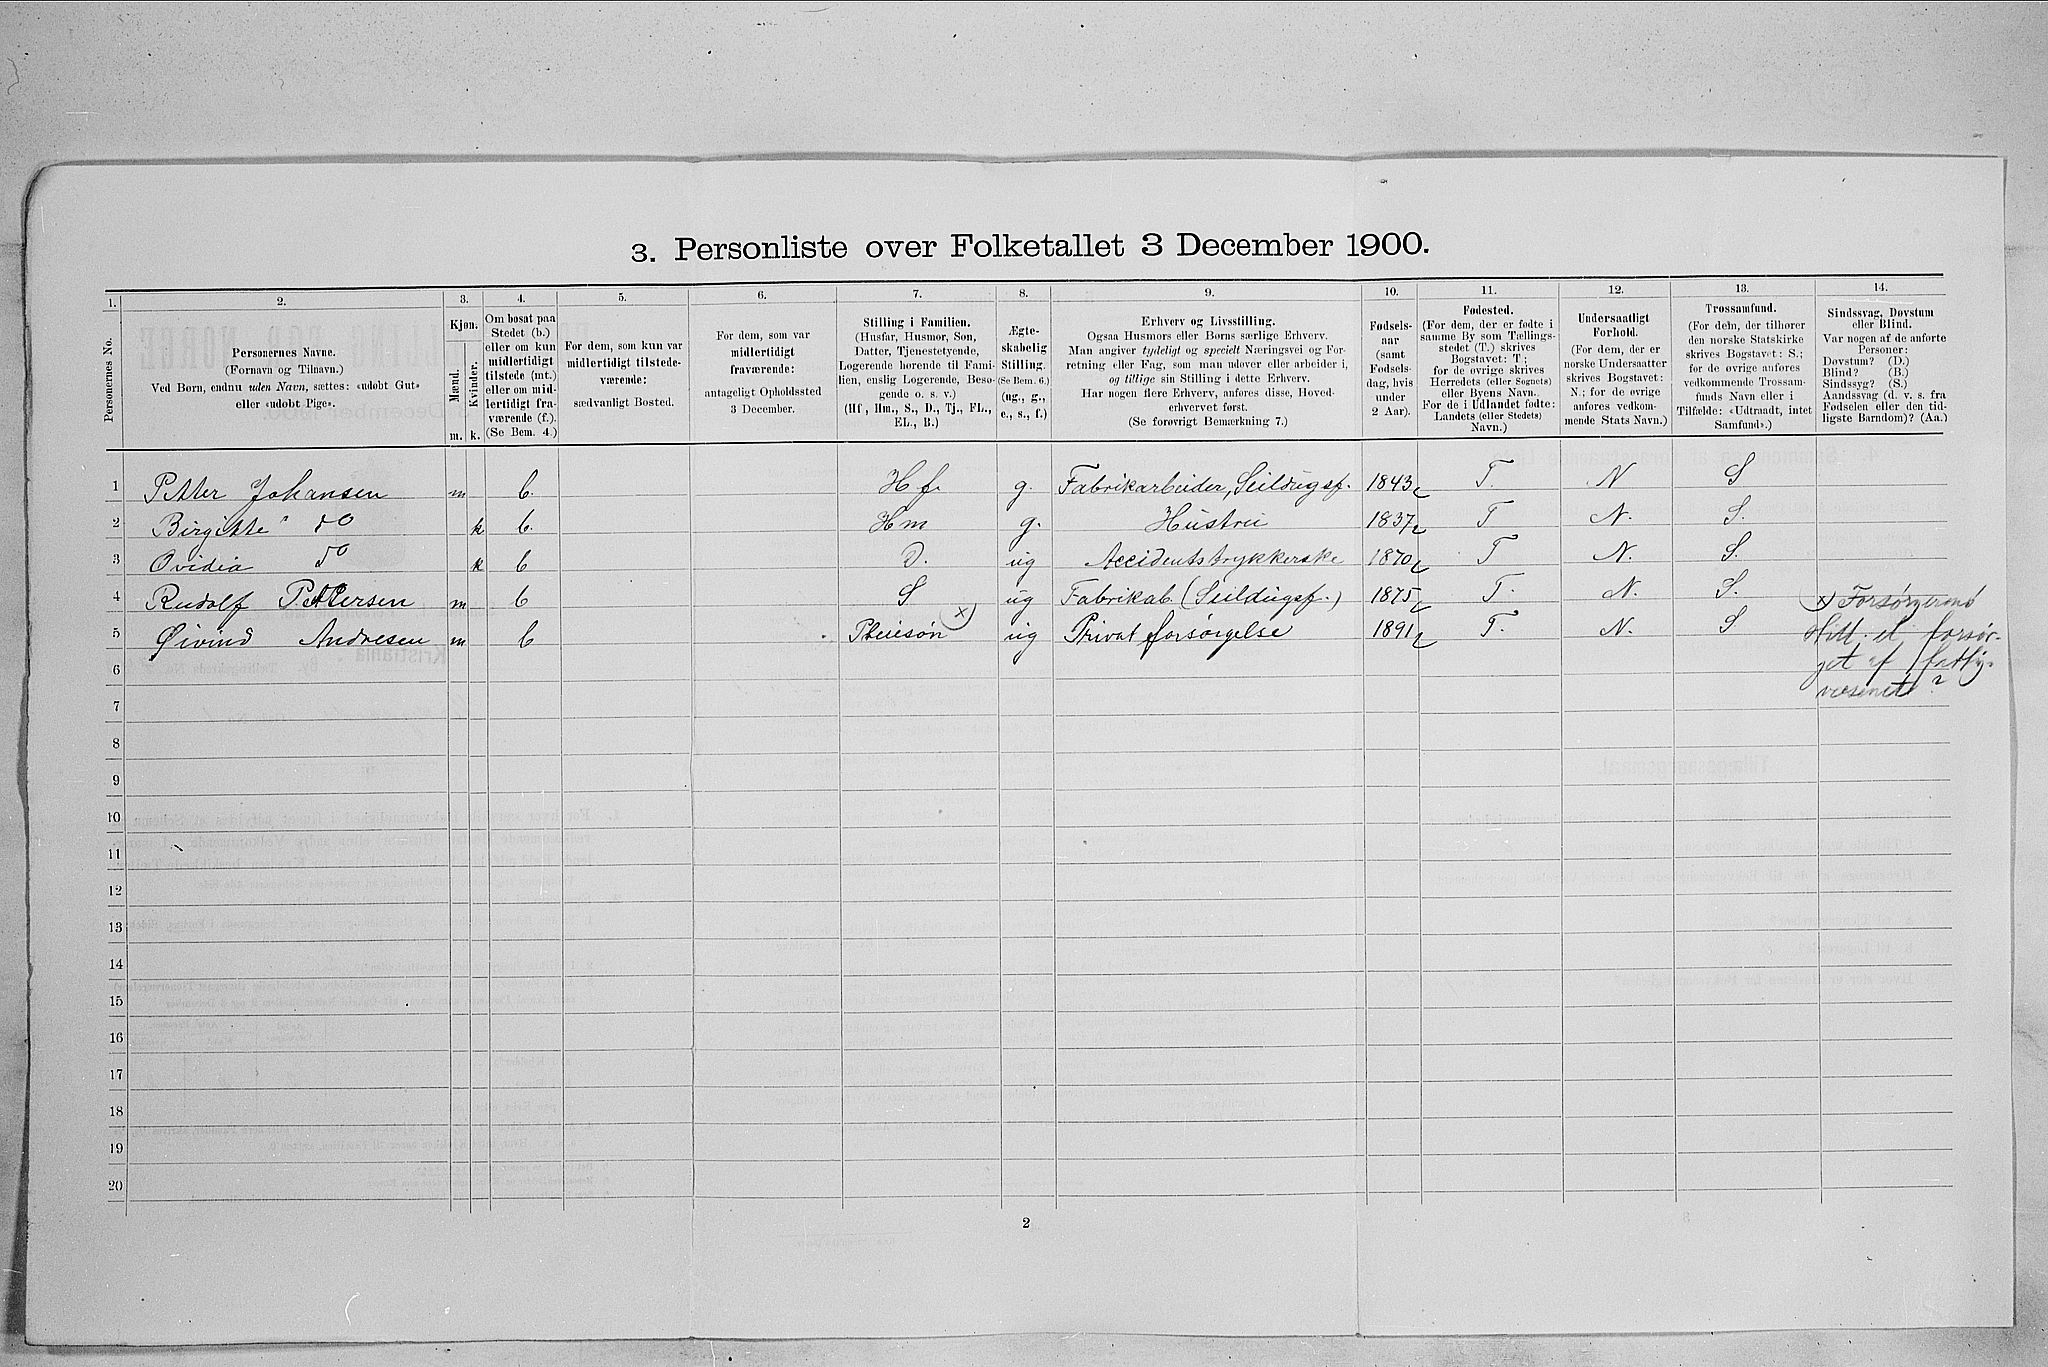 3. Personliste over Folketallet 3 December 1900.
1. 2. 3. 4. 5. 6. 7. 8. 9. 10. 11. 12. 13. 14.
Personernes No.
Personernes Navne.
(Fornavn og Tilnavn.)
Ved Børn, endnu uden Navn, sættes: «udøbt Gut»
eller «udøbt Pige».
Kjøn.
Mænd.
Kvinder.
m. k.
Om bosat paa
Stedet (b.)
eller om kun
midlertidigt
tilstede (mt.)
eller om mid-
lertidigt fra-
værende (f.).
(Se Bem. 4.)
For dem, som kun var
midlertidigt tilstede-
værende:
sædvanligt Bosted.
For dem, som var
midlertidigt
fraværende:
antageligt Opholdssted
3 December.
Stilling i Familien.
(Husfar, Husmor, Søn,
Datter, Tjenestetyende,
Logerende hørende til Fami-
lien, enslig Logerende, Besø-
gende o. s. v.)
(Hf, Hm., S., D., Tj., FL.,
EL., B.)
Ægte-
skabelig
Stilling.
(Se Bem. 6.)
(ug., g.,
e., s., f.)
Erhverv og Livsstilling.
Ogsaa Husmors eller Børns særlige Erhverv.
Man angiver tydeligt og specielt Næringsvei og For-
retning eller Fag, som man udøver eller arbeider i,
og tillige sin Stilling i dette Erhverv.
Har nogen flere Erhverv, anføres disse, Hoved-
erhvervet først.
(Se forøvrigt Bemærkning 7.)
Fødsels-
aar
(samt
Fødsels-
dag, hvis
under
2 Aar).
Fødested.
(For dem, der er fødte i
samme By som Tællings-
stedet (T.) skrives
Bogstavet: T;
for de øvrige skrives
Herredets (eller Sognets)
eller Byens Navn.
For de i Udlandet fødte:
Landets (eller Stedets)
Navn.)
Undersaatligt
Forhold.
(For dem, der er
norske Undersaatter
skrives Bogstavet:
N.; for de øvrige
anføres vedkom-
mende Stats Navn.)
Trossamfund.
(For dem, der tilhører
den norske Statskirke
skrives Bogstavet: S.;
for de øvrige anføres
vedkommende Trossam-
funds Navn eller i
Tilfælde: «Udtraadt, intet
Samfund».)
Sindssvag, Døvstum
eller Blind.
Var nogen af de anførte
Personer:
Døvstum? (D.)
Blind? (B.)
Sindssyg? (S.)
Aandssvag (d. v. s. fra
Fødselen eller den tid-
ligste Barndom)? (Aa.)
1 Petter Johansen m b. Hf. g. Fabrikarbeider, Seildugsf. 1843 T N S
2 Birgitte do k b. Hm g. Hustru 1837 T N. S.
3 Ovidia do k b D. ug Accidentstrykkerske 1870 T N. S.
4 Rudolf Pettersen m b S ug Fabrikab. (Seildugsf.) 1875 T. N. S.
5 Øivind Andresen m b Pleiesøn x) ug Privat forsørgelse 1891 T. N. S
x) Forsørgernes
Stilt. el. forsør-
get af fattig-
væsenet?
6
7
8
9
10
11
12
13
14
15
16
17
18
19
20
2